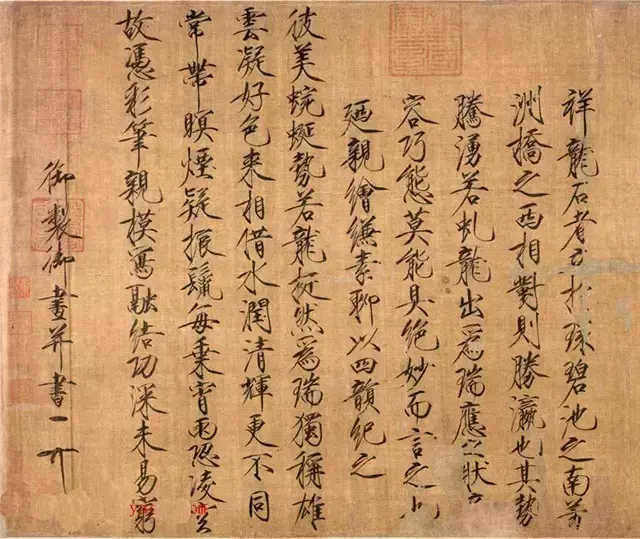 祥龍石者立於環碧池之南芳
洲橋之西相對則勝瀛也其勢
騰湧若虬龍出爲瑞應之狀奇
容巧態莫能具絶妙而言之也
廼親繪縑素聊以四韻紀之
彼美蜿蜒勢若龍挺然爲瑞獨稱雄
雲凝好色來相借水潤清輝更不同
常帶暝煙疑振鬣每乘宵雨恐凌空
故憑彩筆親模寫融結功深未易窮
御製御畫并書